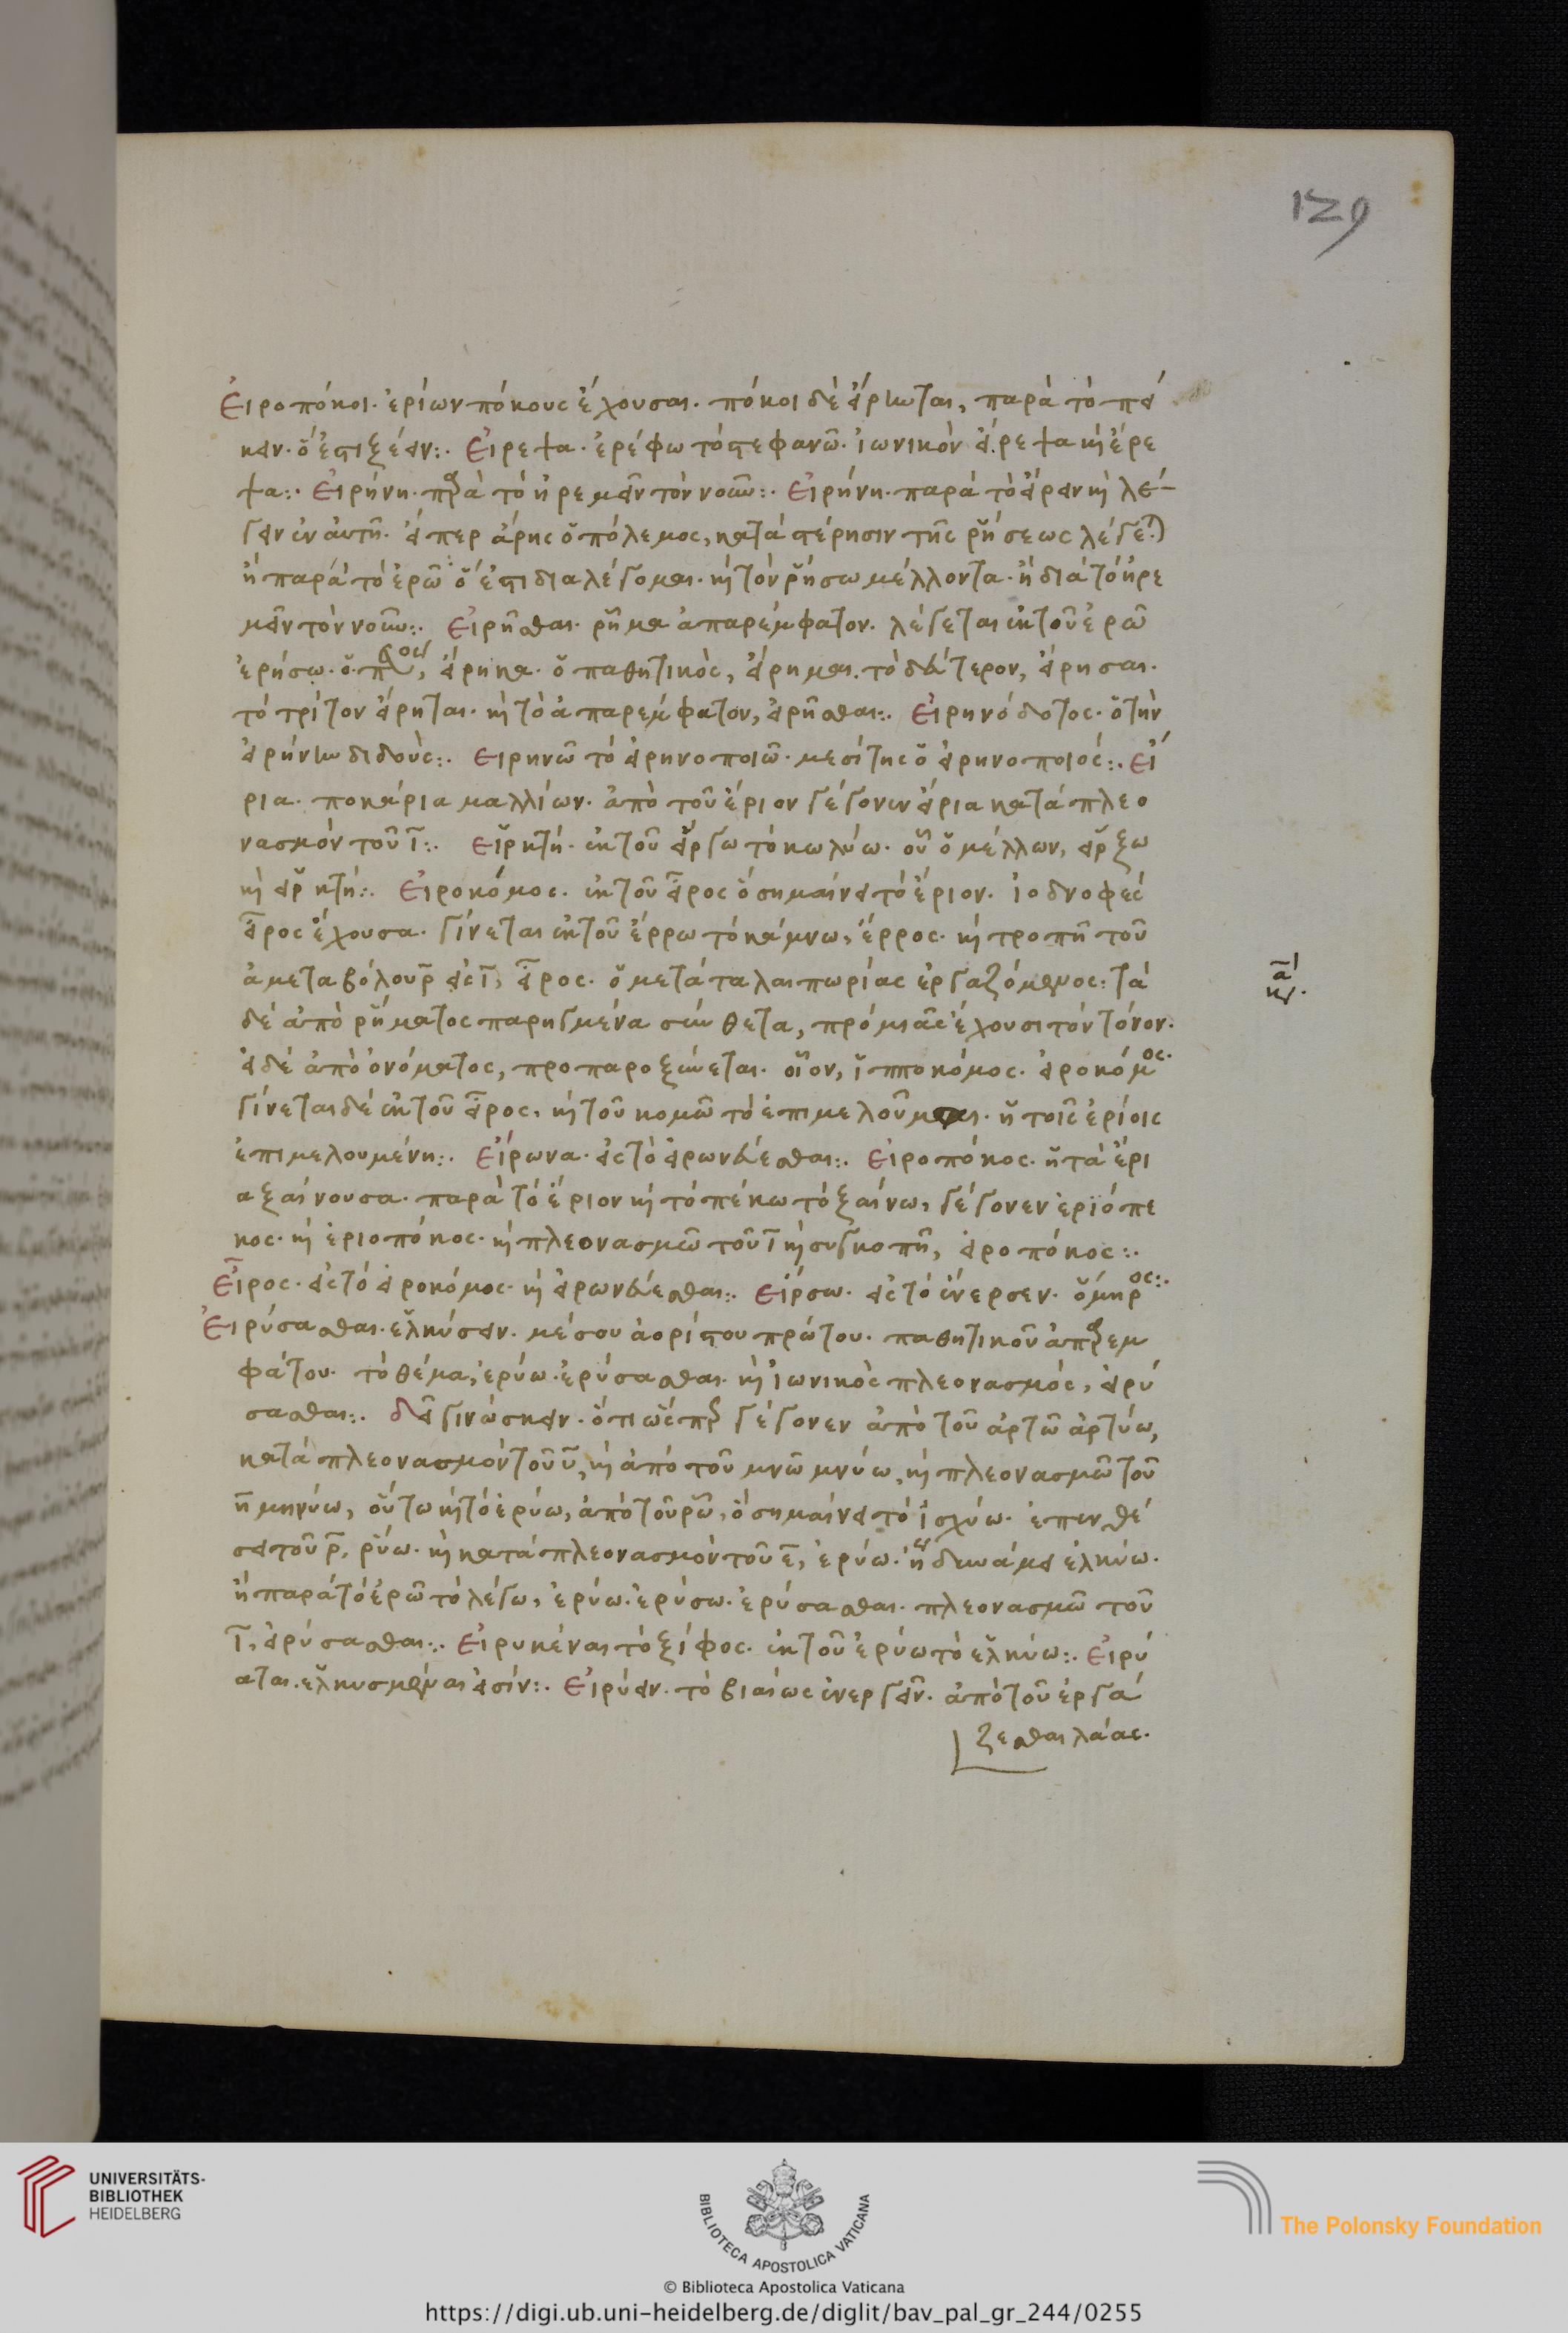 129
Εἰροπόκοι. ἐρίων πόκους ἔχουσαι. πόκοι δὲ εἴρηνται, παρὰ τὸ πεί
κειν. ὅ ἐστι ξέειν:. Εἴρεψα. ἐρέφω τὸ στεφανῶ. ἰωνικὸν εἴρεψα κὴ ἔρε
ψα:. Εἰρήνη. παρὰ τὸ ἠρεμεῖν τὸν νοῦν:. Εἰρήνη. παρὰ τὸ εἴρειν κὴ λέ-
γειν ἐν αὐτῆ. εἴπερ ἄρης ὁ πόλεμος, κατὰ στέρησιν τῆς ῥήσεως λέγε)
ἢ παρὰ τὸ ἐρῶ ὅ ἐστι διαλέγομαι. κὴ τὸν ῥήσω μέλλοντα. ἢ διὰ τὸ ἠρε
μεῖν τὸν νοῦν:. Εἰρῆσθαι. ῥῆμα ἀπαρέμφατον. λέγεται ἐκ τοῦ ἐρῶ
ἐρήσω. ὁ , εἴρηκα. ὁ παθητικὸς, εἴρημαι. τὸ δεύτερον, εἴρησαι.
τὸ τρίτον εἴρηται. κὴ τὸ ἀπαρέμφατον, εἰρῆσθαι:. Εἰρηνόδοτος. ὁ τὴν
εἰρήνην διδοὺς:. Ειρηνῶ τὸ εἰρηνοποιῶ. μεσίτης ὁ εἰρηνοποιός:. Εἴ
ρια. ποκάρια μαλλίων. ἀπὸ τοῦ ἔριον γέγονεν εἴρια κατὰ πλεο
νασμὸν τοῦ ι:. Εἱρκτή. ἐκ τοῦ εἵργω τὸ κωλύω. οὗ ὁ μέλλων, εἵρξω
κὴ εἱρκτή:. Εἰροκόμος. ἐκ τοῦ εἶρος ὃ σημαίνει τὸ ἔριον. ἰοδνοφὲς
εἶρος ἔχουσα. γίνεται ἐκ τοῦ ἔρρω τὸ κάμνω, ἔρρος. κὴ τροπῆ τοῦ
ἀμεταβόλου ρ εἰς ι, εἶρος. ὁ μετὰ ταλαιπωρίας ἐργαζόμενος: τὰ
δὲ ἀπὸ ῥήματος παρηγμένα σύνθετα, πρὸ μιᾶς ἔχουσι τὸν τόνον.
εἰ δὲ ἀπὸ ὀνόματος, προπαροξύνεται. οἷον, ἱπποκόμος. εἰροκόμος.
γίνεται δὲ ἐκ τοῦ εἶρος. κὴ τοῦ κομῶ τὸ ἐπιμελοῦμαι. ἡ τοῖς ἐρίοις
ἐπιμελουμένη:. Εἴρωνα. εἰς τὸ εἰρωνεύεσθαι:. Εἰροπόκος. ἡ τὰ ἔρι
α ξαίνουσα. παρὰ τὸ ἔριον κὴ τὸ πέκω τὸ ξαίνω, γέγονεν ἐριόπε
κος. κὴ ἐριοπόκος. κὴ πλεονασμῶ τοῦ ι κὴ συγκοπῆ, εἰροπόκος:.
Εἶρος. εἰς τὸ εἰροκόμος. κὴ εἰρωνεύεσθαι:. Εἴρσω. εἰς τὸ ἔνερσεν. ὅμηρος:.
Εἰρύσασθαι. ἑλκύσειν. μέσου ἀορίστου πρώτου. παθητικοῦ ἀπαρεμ
φάτου. τὸ θέμα, ἐρύω. ἐρύσασθαι. κὴ ἰωνικὸς πλεονασμός, εἰρύ
σασθαι:. δεῖ γινώσκειν. ὅτι ὥσπερ γέγονεν ἀπὸ τοῦ ἀρτῶ ἀρτύω,
κατὰ πλεονασμὸν τοῦ υ, κὴ ἀπὸ τοῦ μνῶ μνύω, κὴ πλεονασμῶ τοῦ
η μηνύω, οὕτω κὴ τὸ ἐρύω, ἀπὸ τοῦ ῥῶ, ὃ σημαίνει τὸ ἰσχύω. ἐπενθέ
σει τοῦ ρ, ῥύω. κὴ κατὰ πλεονασμὸν τοῦ ε, ἐρύω. ἐν ἧ δυνάμει ἑλκύω.
ἢ παρὰ τὸ ἐρῶ τὸ λέγω, ἐρύω. ἐρύσω. ἐρύσασθαι. πλεονασμῶ τοῦ
ι, εἰρύσασθαι:. Εἰρυκέναι τὸ ξίφος. ἐκ τοῦ ἐρύω τὸ ἑλκύω:. Εἰρύ
αται. ἑλκυσμέναι εἰσίν:. Εἰρύειν. τὸ βιαίως ἐνεργεῖν. ἀπὸ τοῦ ἐργά
ζεσθαι λάας.
UNIVERSITÄTS-
BIBLIOTHEK
HEIDELBERG
BIBLIOTECA APOSTOLICA VATICANA
The Polonsky Foundation
© Biblioteca Apostolica Vaticana
https://digi.ub.uni-heidelberg.de/diglit/bav_pal_gr_244/0255